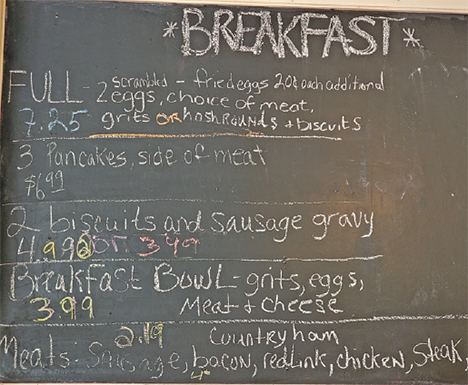 *BREAKFAST*
scrambled - fried eggs 20¢ each additional
FULL - 2 eggs, choice of meat,
7.25 grits OR hashROUNDS + biscuits
3 Pancakes, side of meat
$6.99
2 biscuits and sausage gravy
4.99 2 or 3.49
Breakfast Bowl - grits, eggs,
3.99 Meat + cheese
2.49 Country ham
Meats: Sausage, bacon, redlink, chicken, Steak,